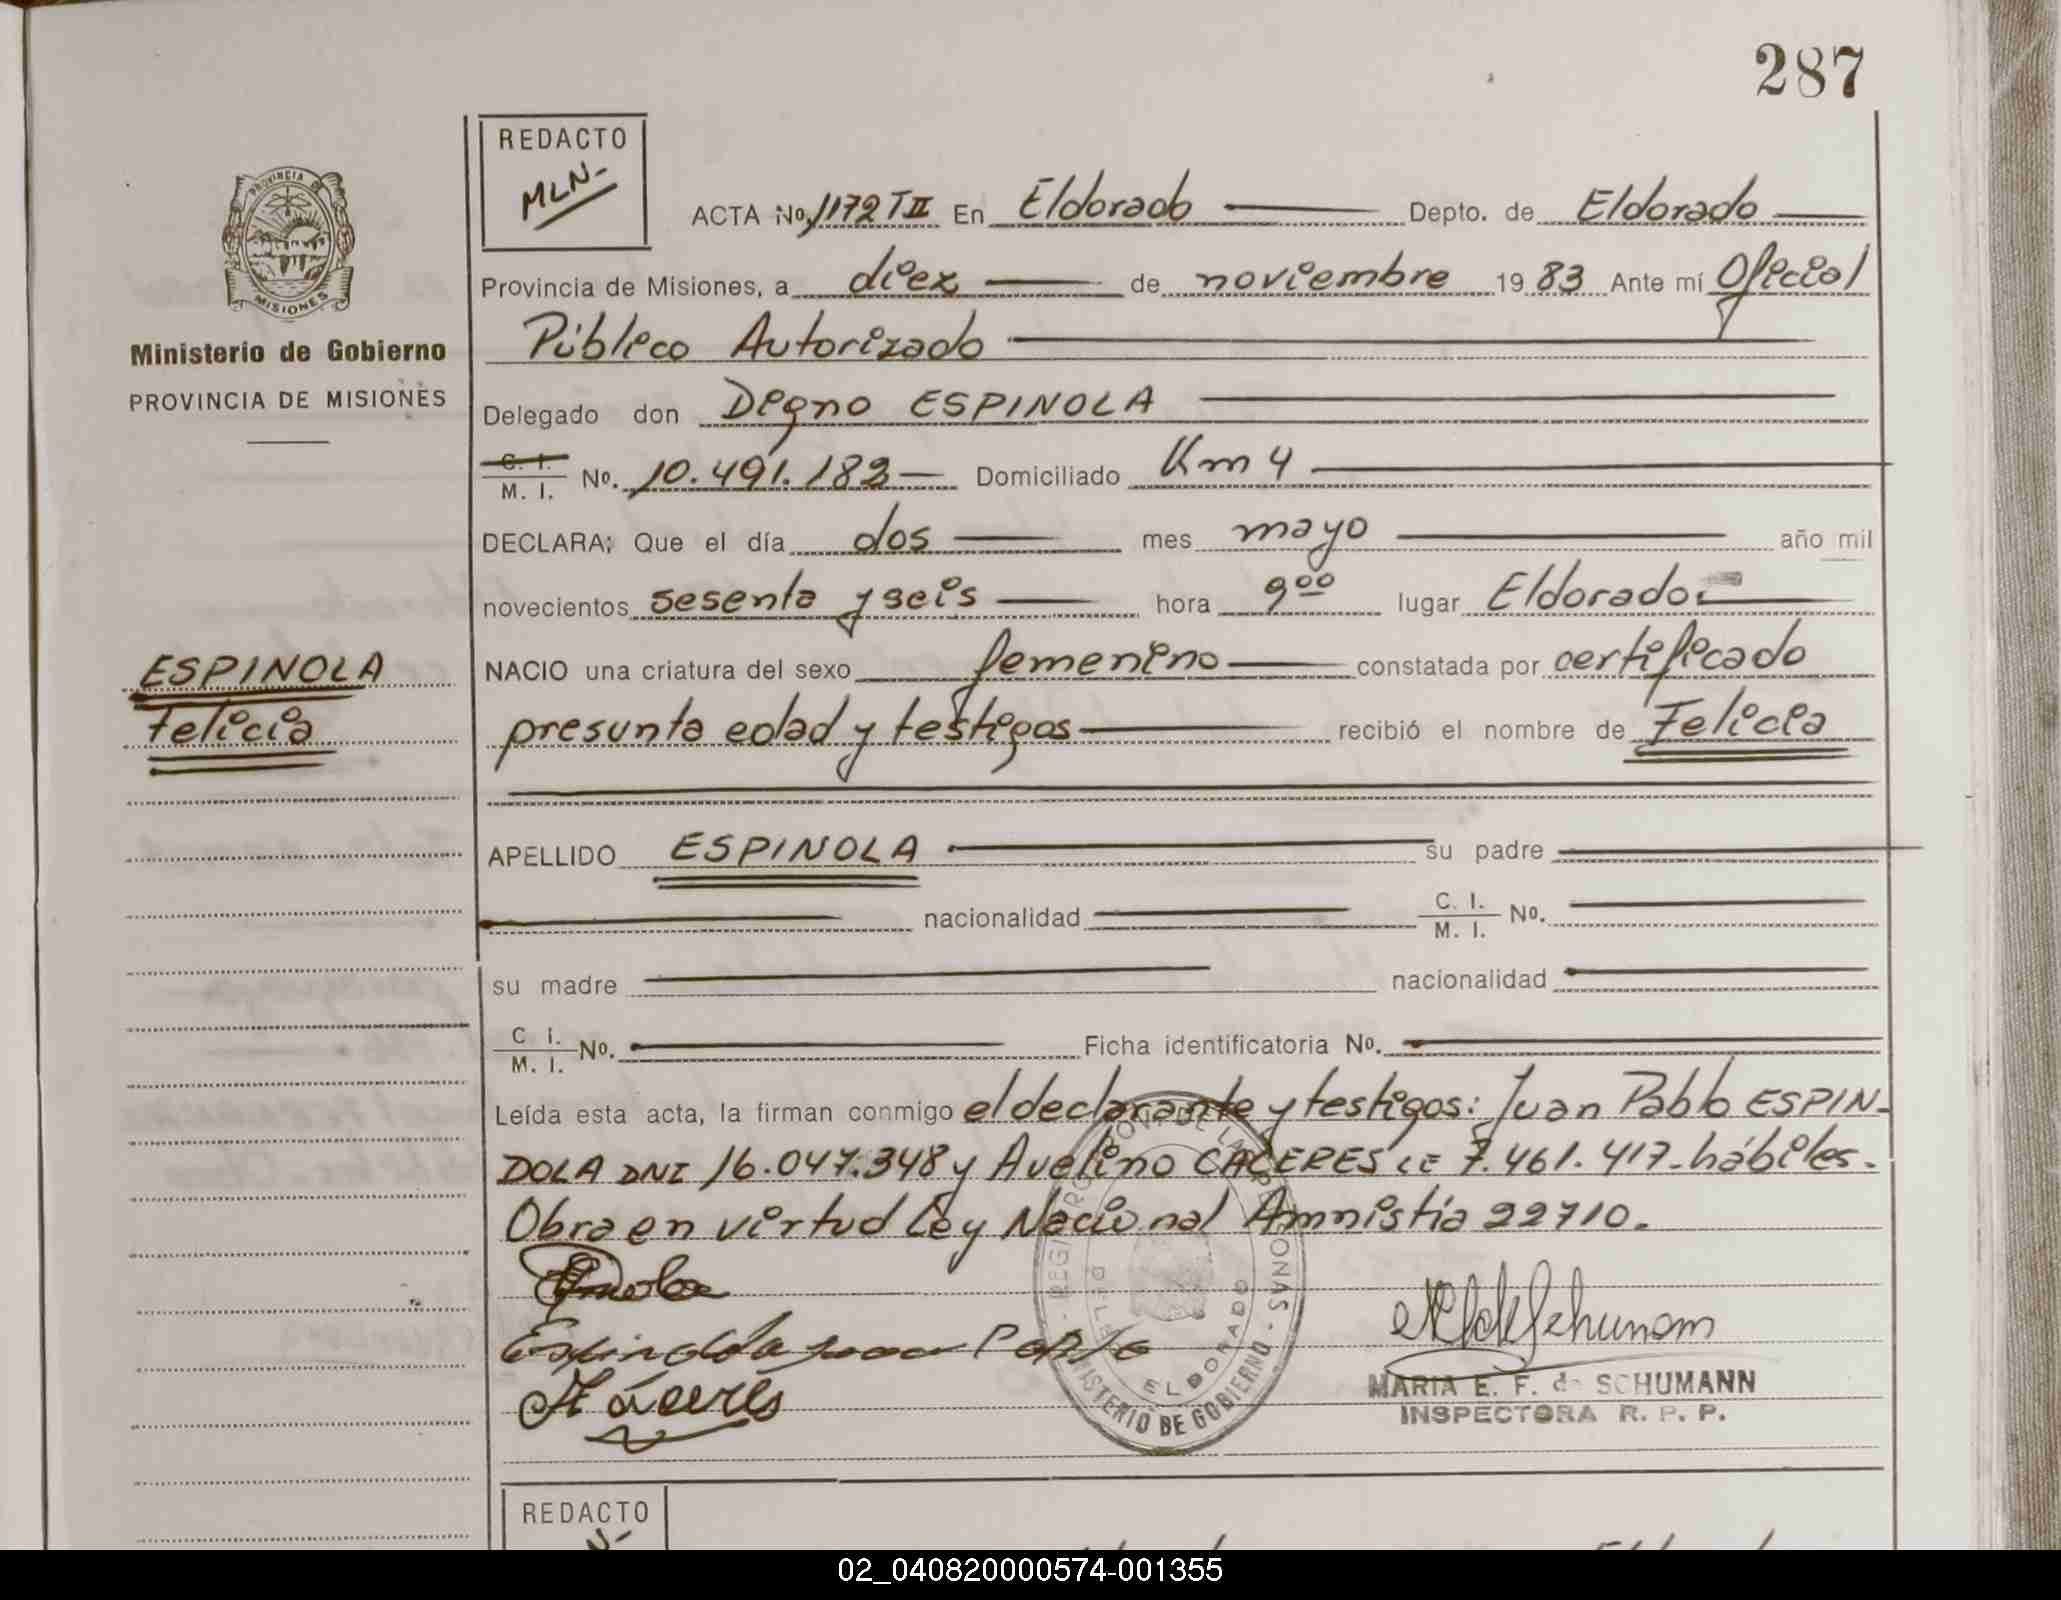 287
REDACTO
MLN-
PROVINCIA DE
MISIONES
Ministerio de Gobierno
PROVINCIA DE MISIONES
ACTA No. 1172 T II En Eldorado Depto. de Eldorado
Provincia de Misiones, a diez de noviembre 19 83 Ante mí Oficial
Público Autorizado
Delegado don Digno ESPINOLA
C. I.
M. I. No. 10.491.183 Domiciliado Km 4
DECLARA; Que el día dos mes mayo año mil
novecientos sesenta y seis hora 9 00 lugar Eldorado.
ESPINOLA
Felicia
NACIO una criatura del sexo femenino constatada por certificado
presunta edad y testigos recibió el nombre de Felicia
APELLIDO ESPINOLA su padre
nacionalidad C. I.
M. I. No.
su madre nacionalidad
C I.
M. I. No. Ficha identificatoria No.
Leída esta acta, la firman conmigo el declarante y testigos: Juan Pablo ESPIN-
DOLA DNI 16.047.348 y Avelino CACERES LE 7.461.417- hábiles.
Obra en virtud Ley Nacional Amnistía 22710.
Espindola Juan Pablo
MINISTERIO DE GOBIERNO
ELDORADO
MARIA E. F. de SCHUMANN
INSPECTORA R. P. P.
REDACTO
02_040820000574-001355